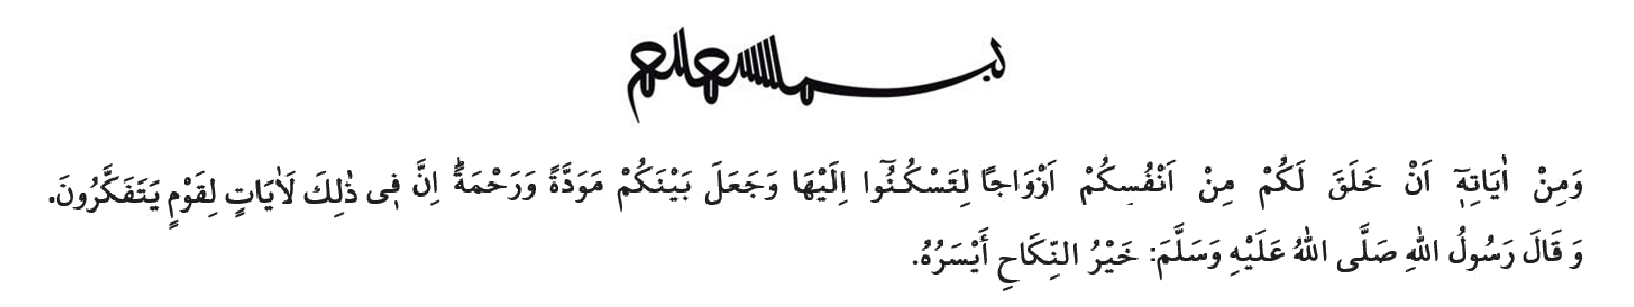 بسمه تعالى
وَمِنْ اٰيَاتِهٖٓ اَنْ خَلَقَ لَكُمْ مِنْ اَنْفُسِكُمْ اَزْوَاجًا لِتَسْكُنُٓوا اِلَيْهَا وَجَعَلَ بَيْنَكُمْ مَوَدَّةً وَرَحْمَةًۜ اِنَّ فٖى ذٰلِكَ لَاٰيَاتٍ لِقَوْمٍ يَتَفَكَّرُونَ.
وَ قَالَ رَسُولُ اللهِ صَلَّى اللهُ عَلَيْهِ وَسَلَّمَ: خَيْرُ النِّكَاحِ أَيْسَرُهُ.